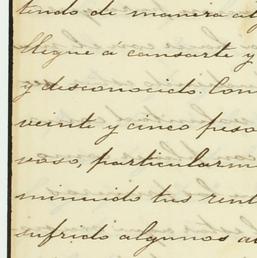 tendo de manera al
llegue á cansarte y
y desconocido. Con
veinte y cinco peso
voso, particularm
minuido tus rent
sufrido algunos a